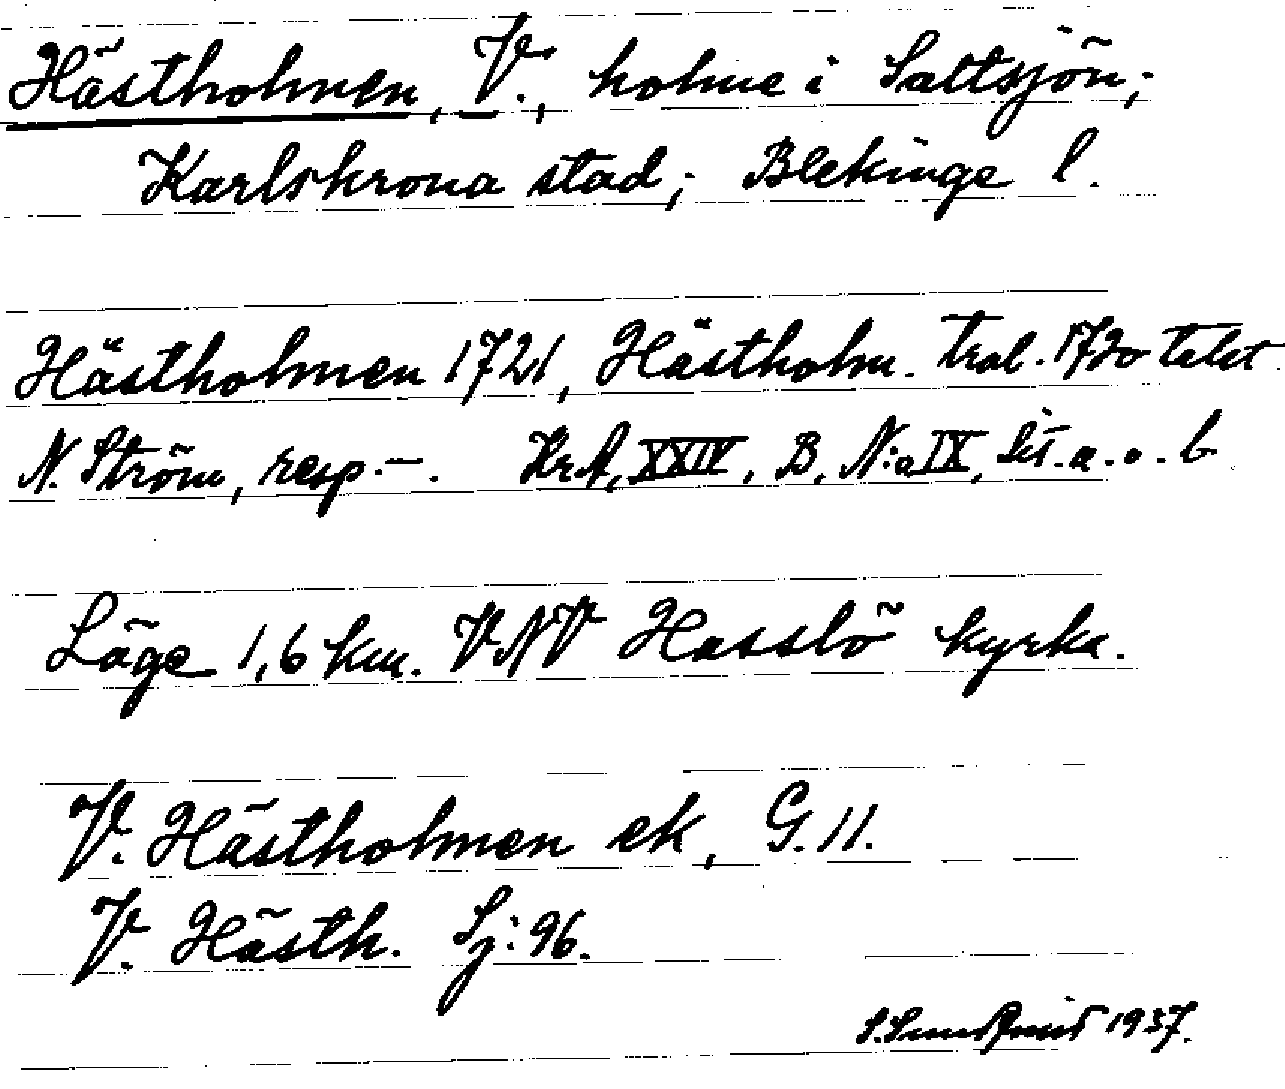 Hästholmen, V., holme i Saltsjön;
Karlskrona stad; Blekinge l.
Hästholmen 1721, Hästholm. trol. 1720 talet
N. Ström, resp. –. KrA, XXIV, B, N:o IX, Lit. a. o. b
Läge 1,6 km. VNV Hasslö kyrka.
V. Hästholmen ek, G. 11.
V. Hästh. Sj: 96.
1937.